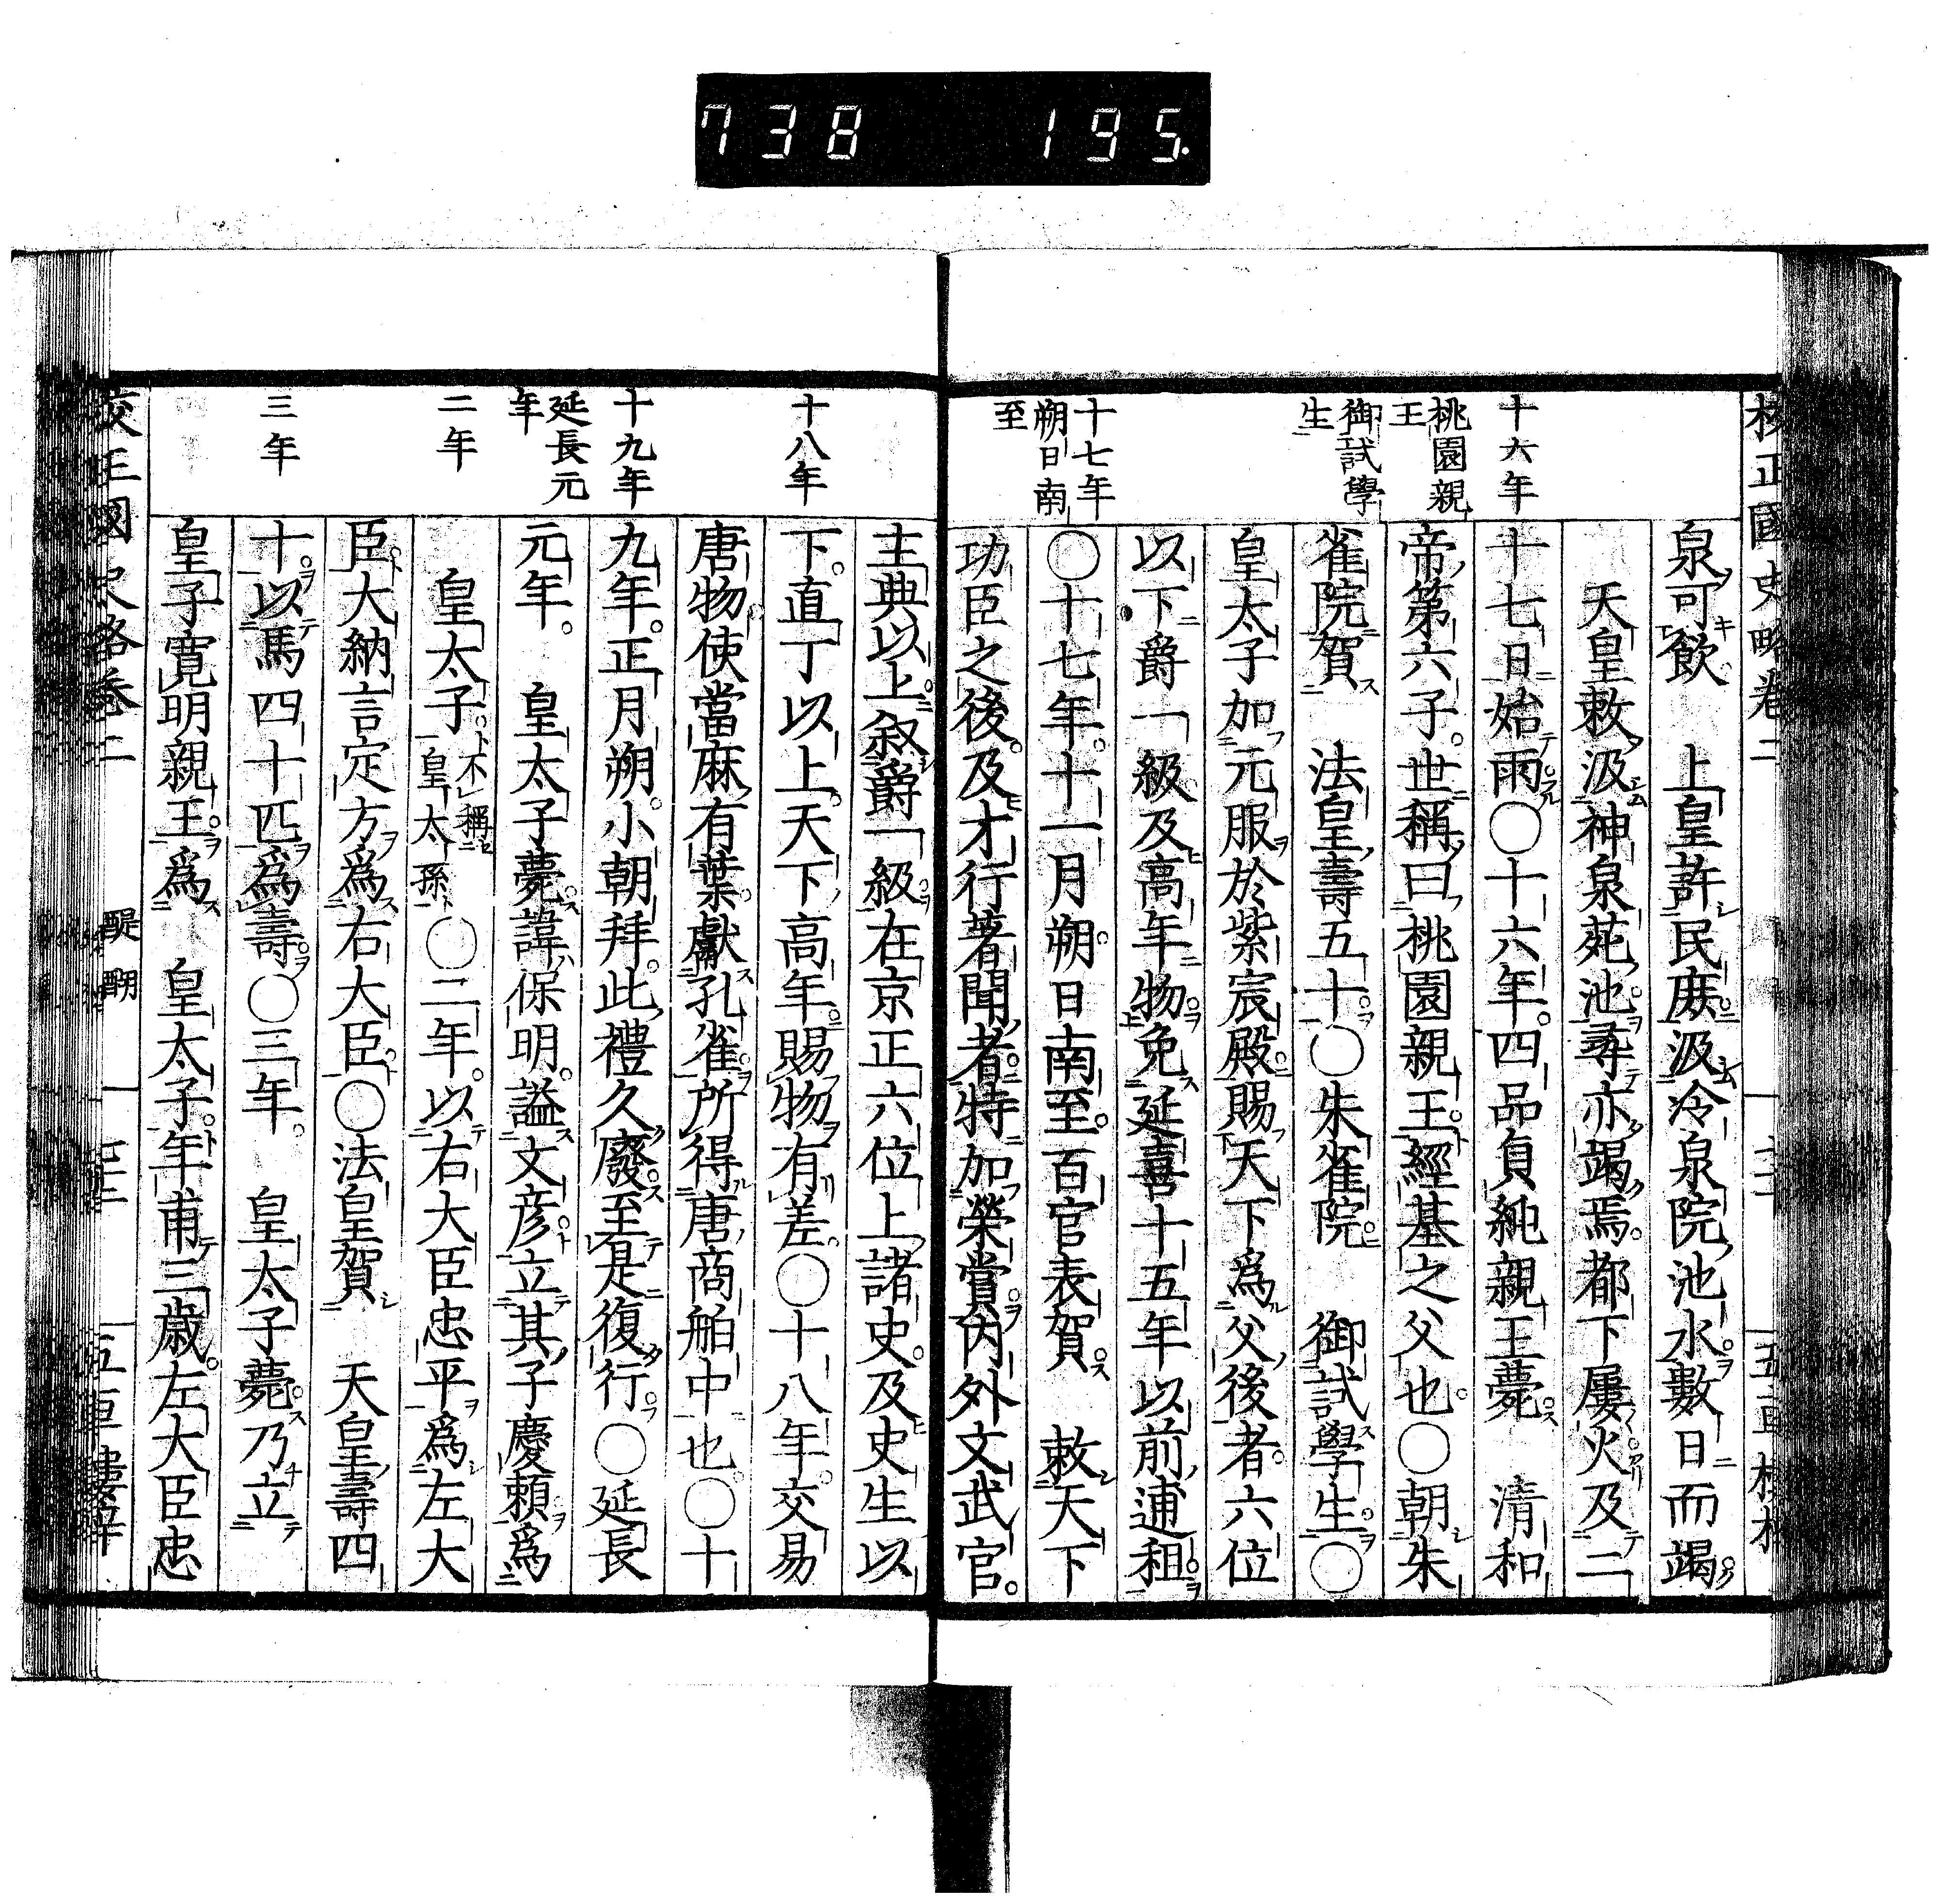 738 195.
校正國史略卷二
泉可飲　上皇許民庶汲冷泉院池水數日而竭
天皇敕汲神泉苑池尋亦竭焉都下屢火及二
十六年
十七日始雨〇十六年四品貞純親王薨　清和
桃園親王
帝第六子世稱曰桃園親王經基之父也〇朝朱
御試學生
雀院賀　法皇壽五十〇朱雀院　御試學生〇
皇太子加元服於紫宸殿賜天下爲父後者六位
以下爵一級及高年物免延喜十五年以前逋租
十七年
朔日南至
〇十七年十一月朔日南至百官表賀　敕天下
功臣之後及才行著聞者特加榮賞内外文武官
主典以上叙爵一級在京正六位上諸史及史生以
十八年
下直丁以上天下高年賜物有差〇十八年交易
唐物使當麻有葉獻孔雀所得唐商舶中也〇十
十九年
九年正月朔小朝拜此禮久廢至是復行〇延長
延長元年
元年　皇太子薨諱保明謚文彦立其子慶頼爲
二年
皇太子不稱皇太孫〇二年以右大臣忠平爲左大
臣大納言定方爲右大臣〇法皇賀　天皇壽四
三年
十以馬四十匹爲壽〇三年　皇太子薨乃立
皇子寛明親王爲　皇太子年甫三歳左大臣忠
國史略卷二
醍醐